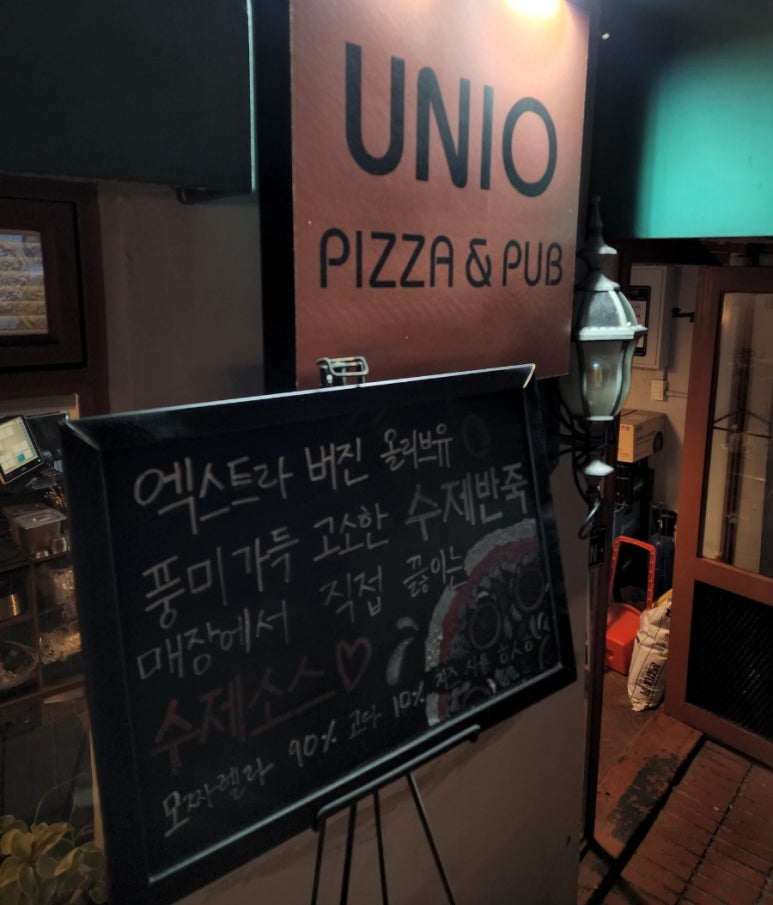 UNIO
PIZZA & PUB
엑스트라 버진 올리브유
풍미가득 고소한 수제반죽
매장에서 직접 끓이는
수제소스♡
모짜렐라 90% 고다 10% 치즈 사용